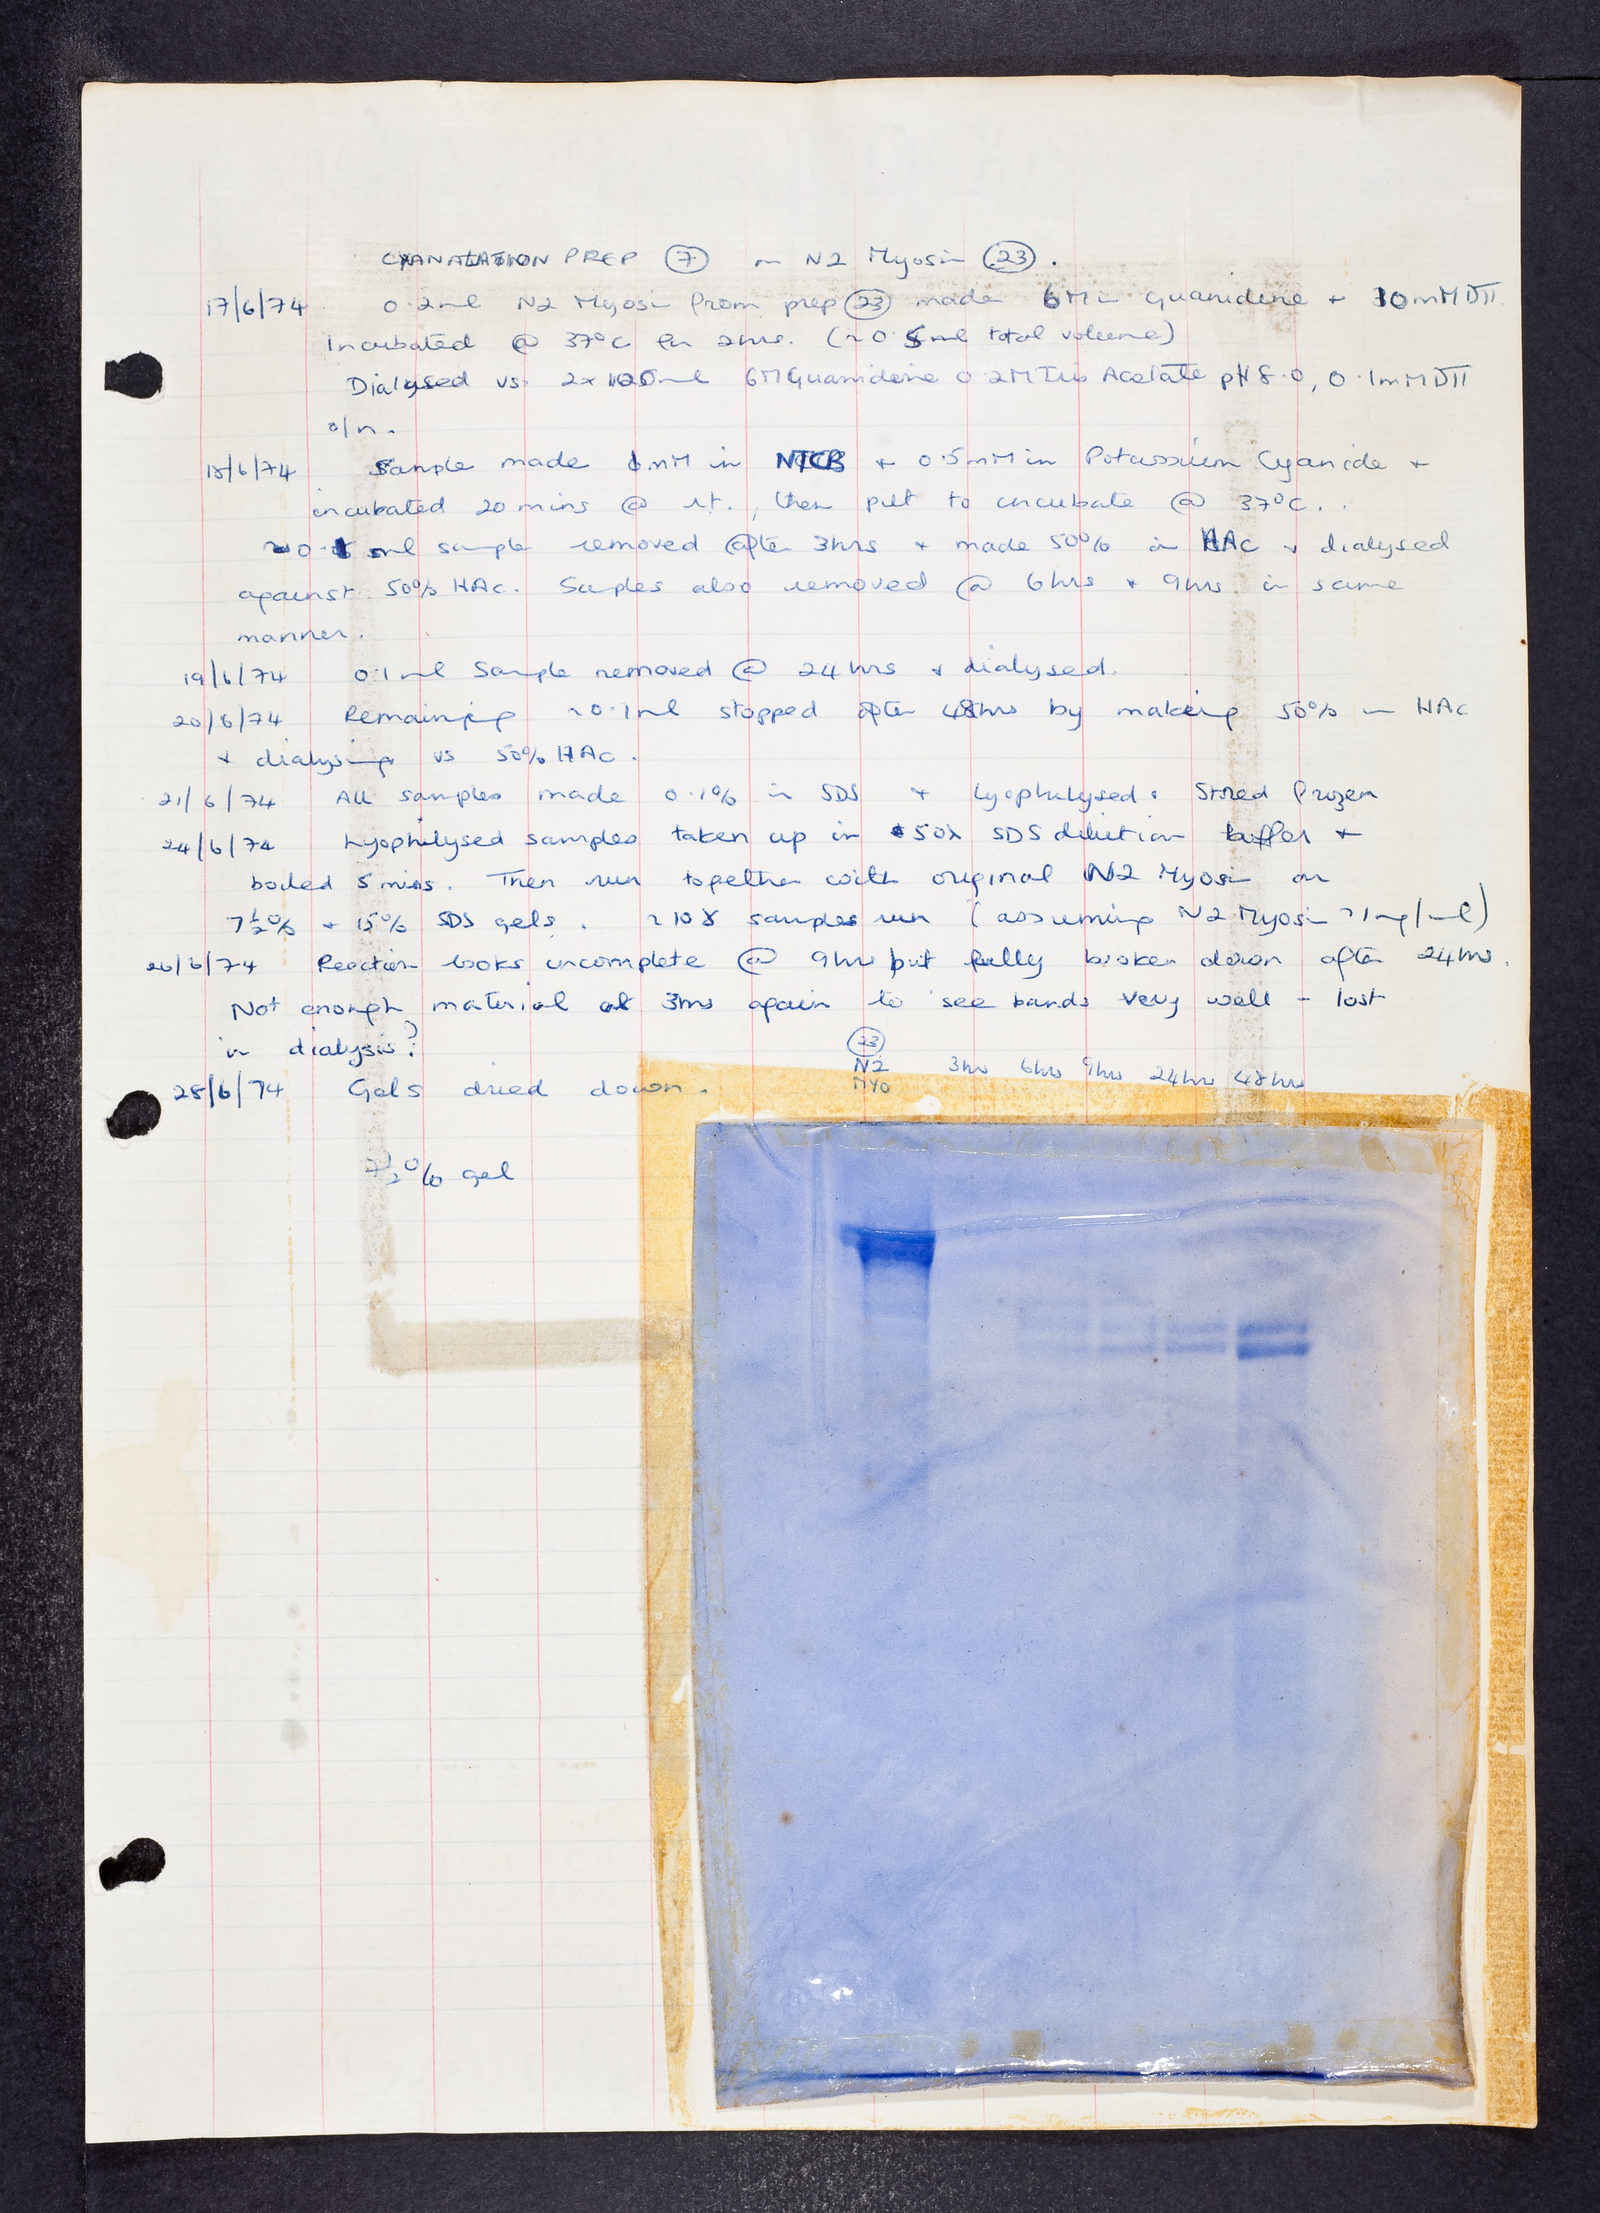 CYANALATION PREP 7 on N2 Myosin 23.
17/6/74 0.2ml N2 Myosin from prep 23 made 6M in guanidine + 10mM DTT
Incubated @ 37°C for 2hrs. (~0.5ml total volume)
Dialysed vs 2x100ml 6M Guanidine 0.2M Tris Acetate pH 8.0, 0.1mM DTT
o/n.
18/6/74 Sample made 1mM in NTCB + 0.5mM in Potassium Cyanide +
incubated 20 mins @ r.t., then put to incubate @ 37°C.
~0.1ml sample removed after 3hrs + made 50% in HAc + dialysed
against 50% HAc. Samples also removed @ 6hrs + 9hrs in same
manner.
19/6/74 0.1ml Sample removed @ 24hrs + dialysed.
20/6/74 Remaining ~0.1ml stopped after 48hrs by making 50% in HAc
+ dialysing vs 50% HAc.
21/6/74 All samples made 0.1% in SDS + Lyophilysed. Stored frozen
24/6/74 Lyophilysed samples taken up in 50λ SDS dilution buffer +
boiled 5 mins. Then run together with original N2 Myosin on
7½% + 15% SDS gels. ~10γ samples run (assuming N2 Myosin ~1mg/ml)
26/6/74 Reaction looks incomplete @ 9hrs but fully broken down after 24hrs.
Not enough material at 3hrs again to see bands very well - lost
in dialysis?
28/6/74 Gels dried down.
23
N2 MYO 3hr 6hrs 9hrs 24hrs 48hrs
7½% gel